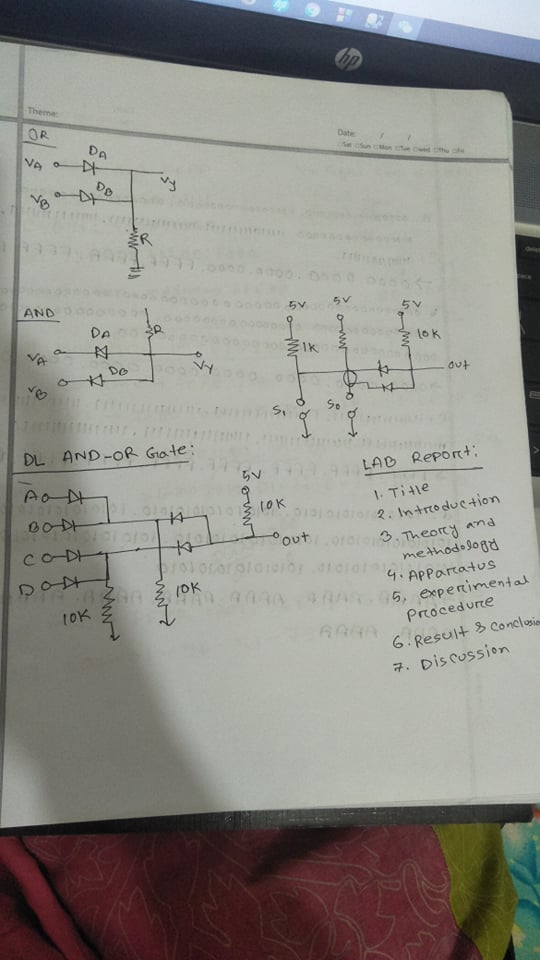 hp
Theme:
Date: / /
Sat Sun Mon Tue Wed Thu Fri
OR
DA
VA
VB
DB
Vy
R
AND
R
DA
VA
Vy
DB
VB
5V
5V
5V
1K
10K
out
S1
S0
DL AND-OR Gate:
A
B
C
D
5V
10K
out
10K
10K
LAB Report:
1. Title
2. Introduction
3. Theory and
methodology
4. Apparatus
5. experimental
procedure
6. Result & Conclusio
7. Discussion